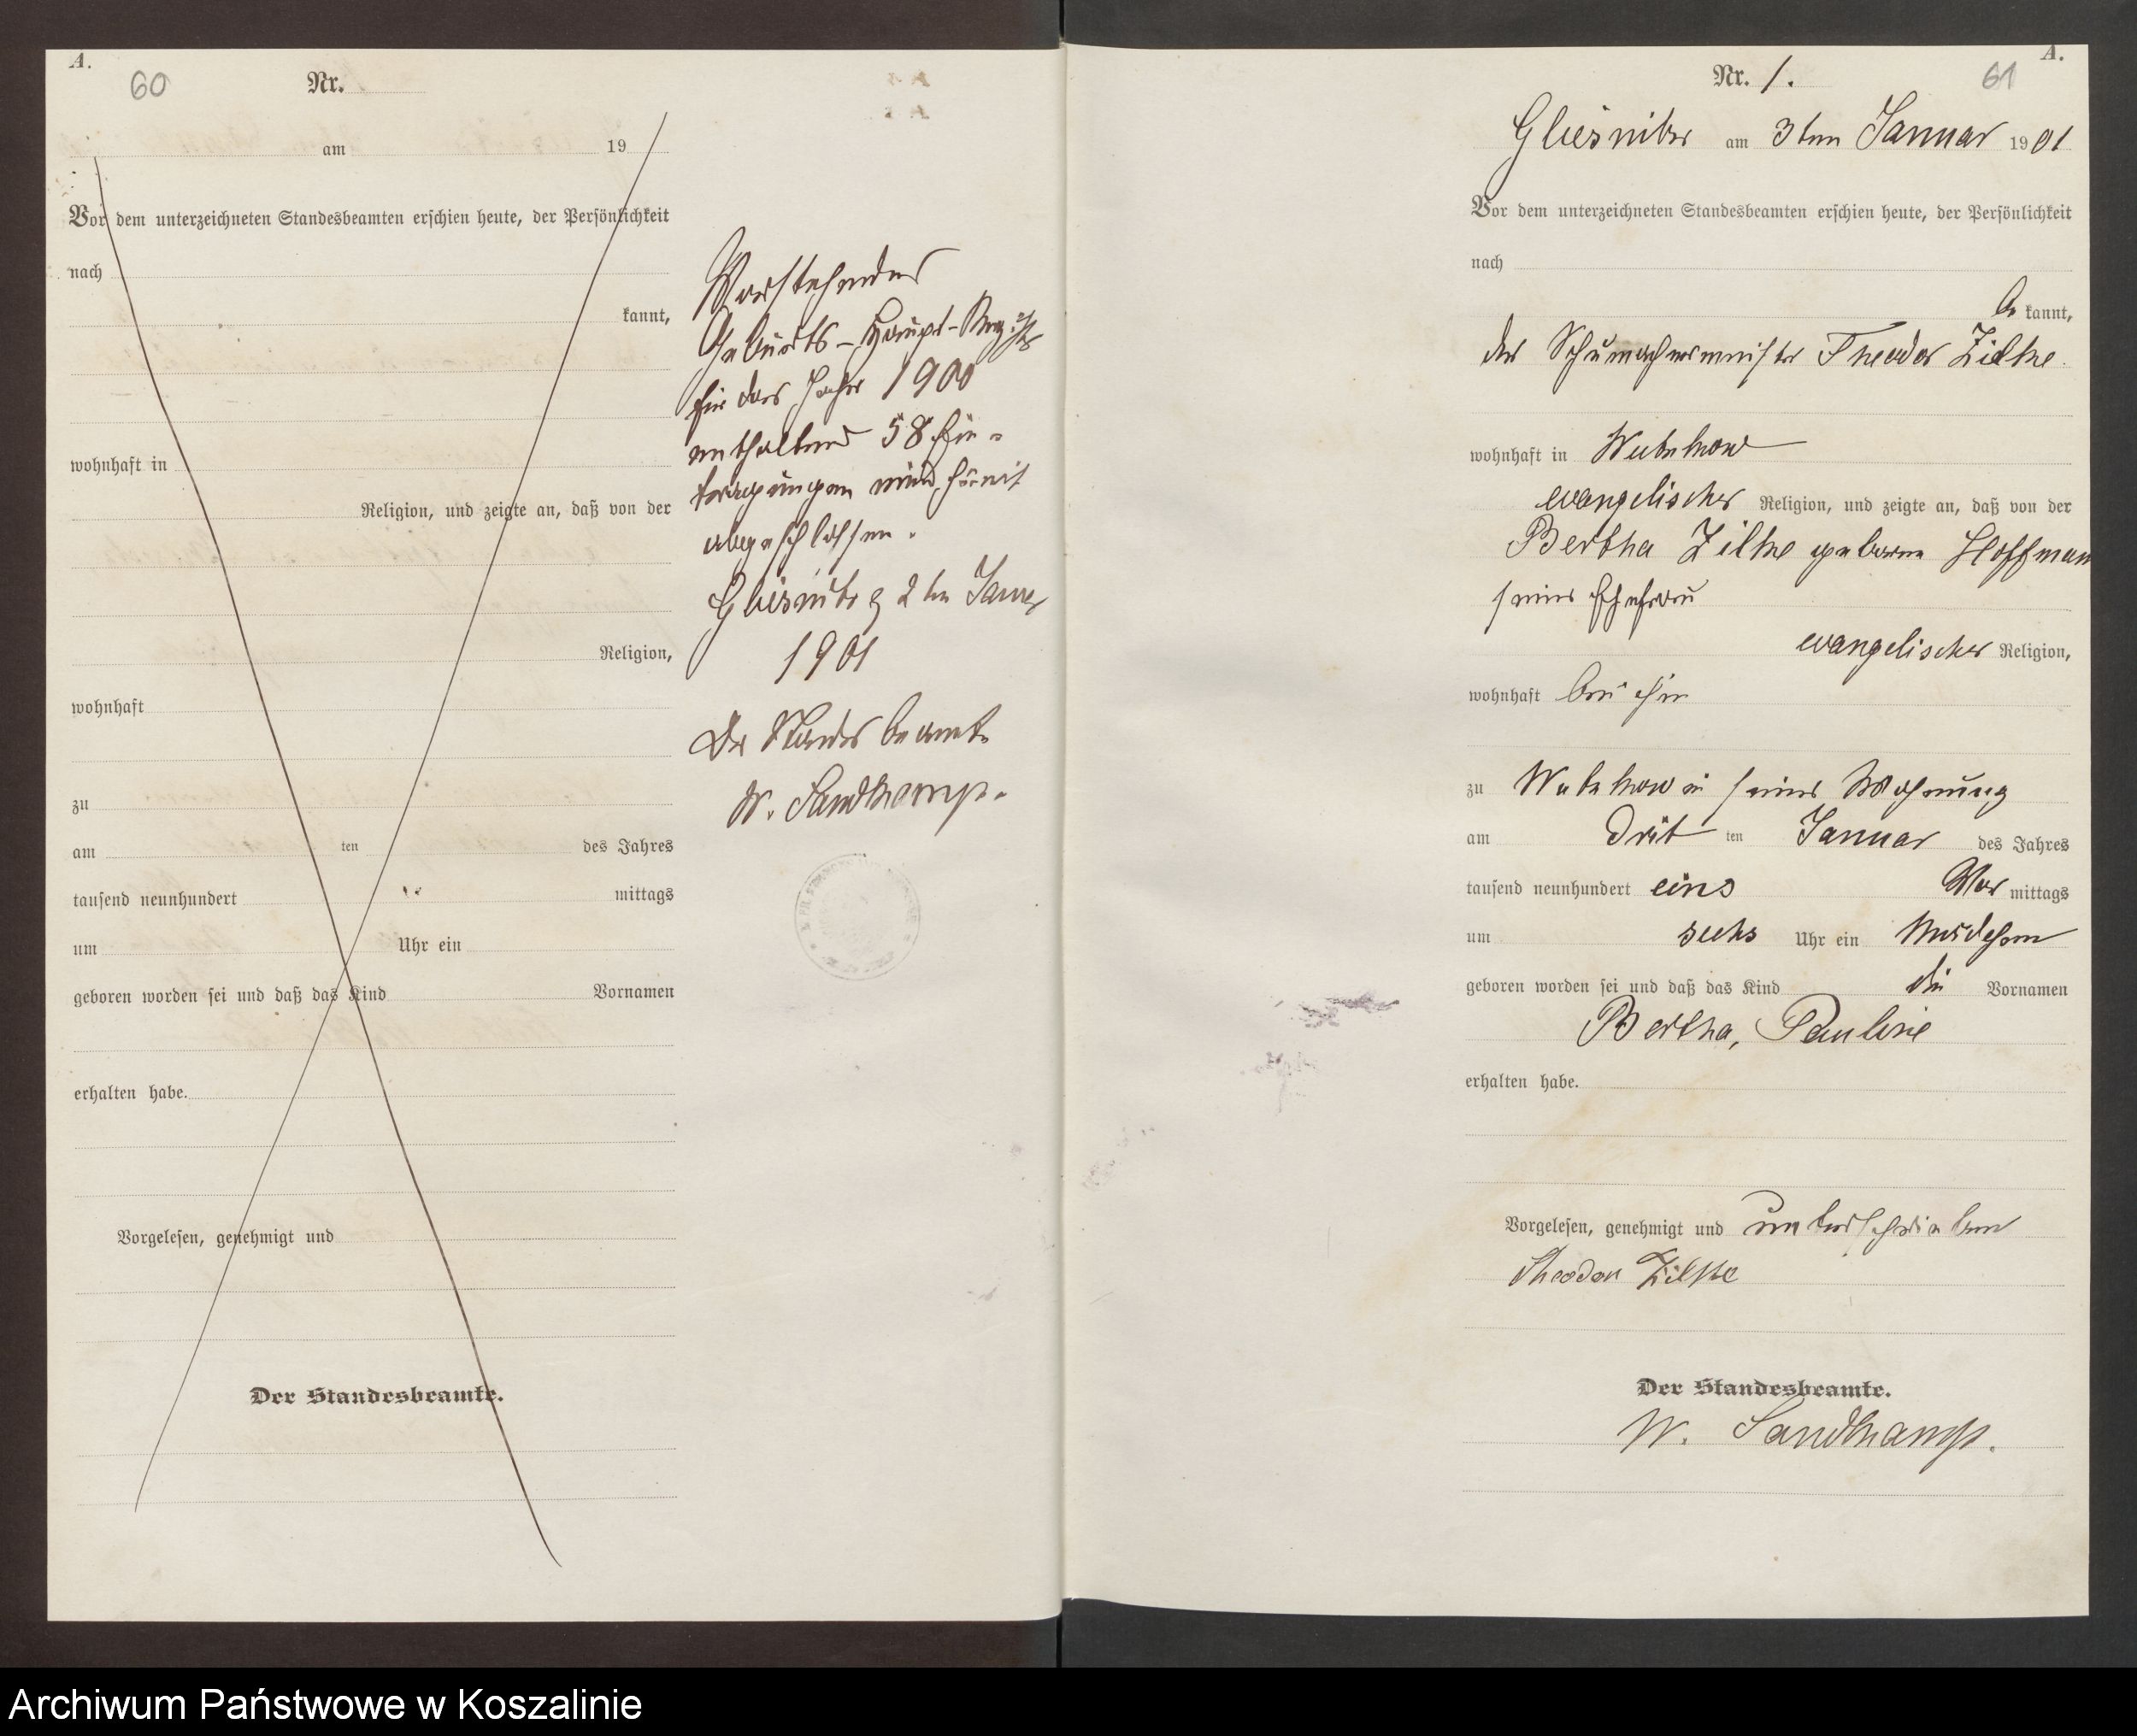 A.
60
Nr.
am 19
Vor dem unterzeichneten Standesbeamten erschien heute, der Persönlichkeit
nach
kannt,
wohnhaft in
Religion, und zeigte an, daß von der
Religion,
wohnhaft
zu
am ten des Jahres
tausend neunhundert mittags
um Uhr ein
geboren worden sei und daß das Kind Vornamen
erhalten habe.
Vorgelesen, genehmigt und
Der Standesbeamte.
Vorstehendes
Geburts-Haupt-Register
für das Jahr 1900
enthaltend 58 Ein-
tragungen wird hiermit
abgeschlossen.
Gliesnitz 2ten Januar
1901
Der Standesbeamte
W. Sandkamp.
A.
61
Nr. 1.
Gliesnitz am 3ten Januar 1901
Vor dem unterzeichneten Standesbeamten erschien heute, der Persönlichkeit
nach
be kannt,
der Schumachermeister Theodor Zielke
wohnhaft in Wutzkow
evangelischer Religion, und zeigte an, daß von der
Bertha Zilke geborne Hoffman
seiner Ehefrau
evangelischer Religion,
wohnhaft bei ihm
zu Wutzkow in seiner Wohnung
am Drit ten Januar des Jahres
tausend neunhundert eins Vor mittags
um sechs Uhr ein Mädchen
geboren worden sei und daß das Kind die Vornamen
Bertha, Pauline
erhalten habe.
Vorgelesen, genehmigt und unterschrieben
Theodor Zilke
Der Standesbeamte.
W. Sandkamp.
Archiwum Państwowe w Koszalinie